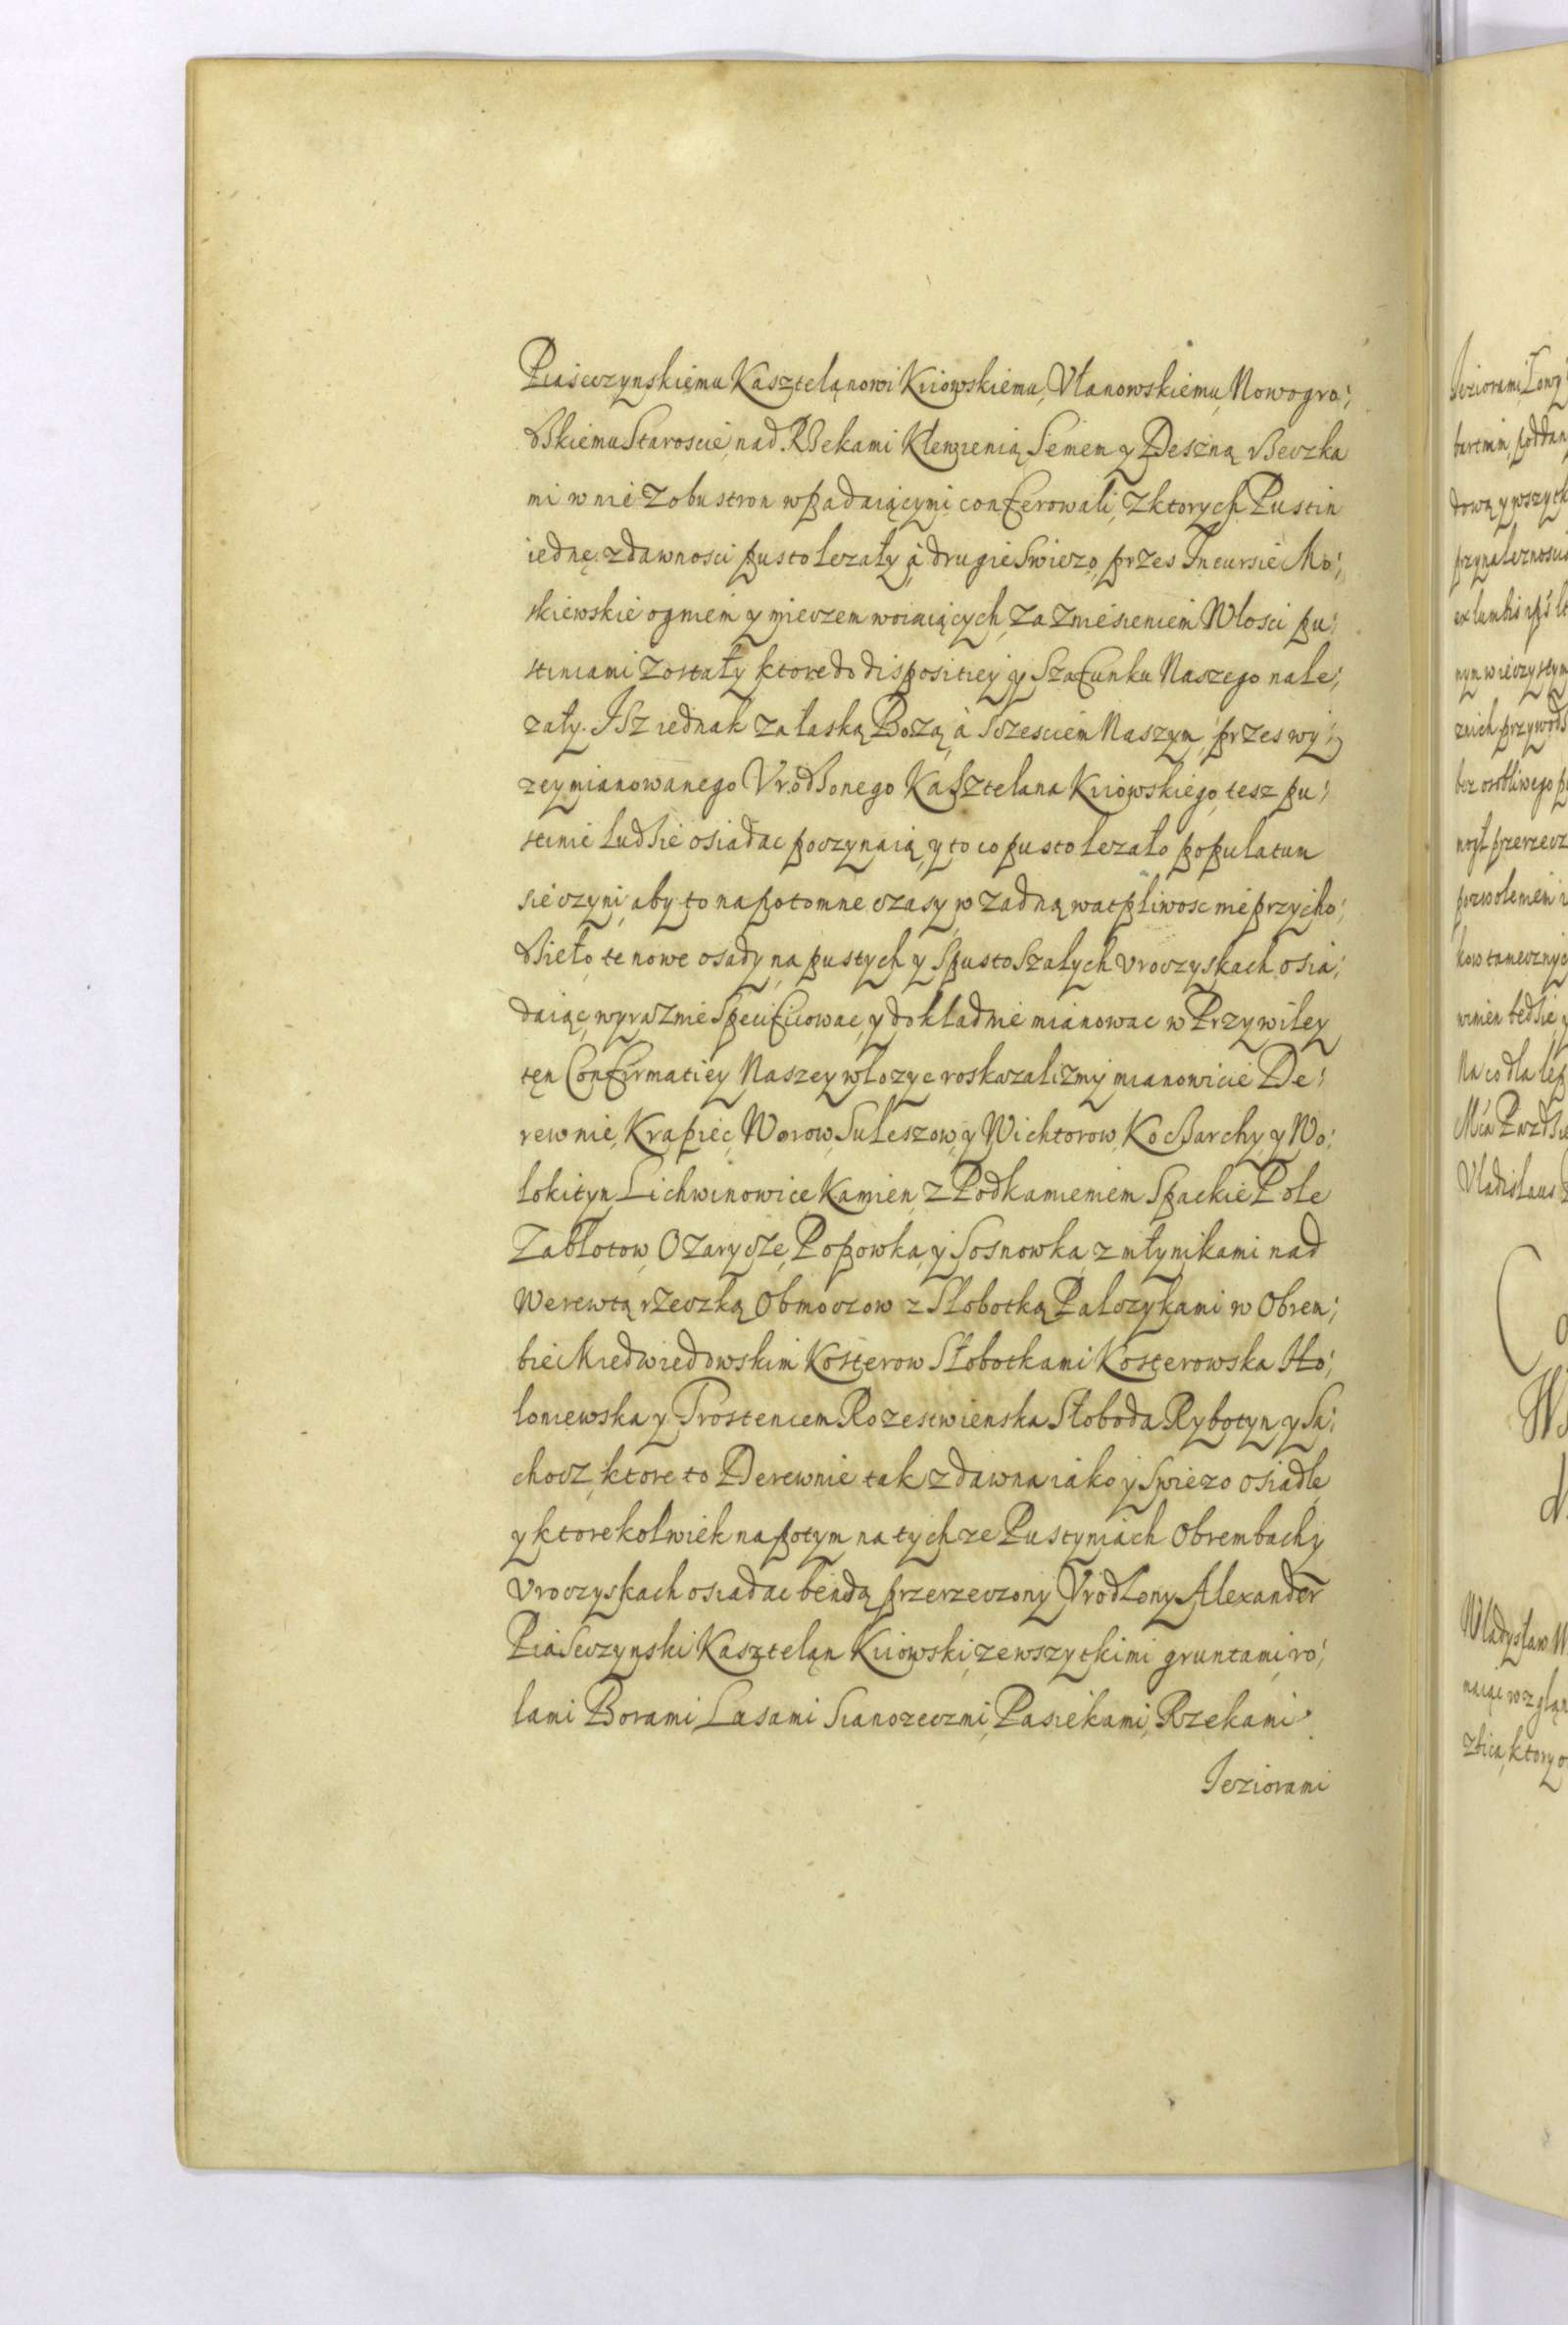 Piasczynskiemu Kasztelanowi Kiiowskiemu, Vłanowskiemu, Nowogro:
dskiemu Staroscie, nad Rzekami Klewienią, Semem y Desзną rzeczka
mi w nie z obu stron wpadaiącymi conferowali, z ktorych Pustin
iednę z dawnosci pusto lezały, à drugie swiezo, przes Incursie Mo:
skiewskie ogniem y mieczem woiuiących, za zniesieniem Włosci pu:
stiniami zostały ktore do dispositiey y szafunku Naszego nale:
zały. Isz iednak za łaską Bozą, à sczesciem Naszym, przes wy:
zey mianowanego Vrodzonego Kasztelana Kiiowskiego, tesz pu:
stinie ludzie osiadac poczynaią, y to co pusto lezało populatum
sie czyni, aby to na potomne czasy, w zadną watpliwosc nie przycho:
dzieło, te nowe osady, na pustych y spustoszałych vroczyskach osia:
daiąc, wyraznie specificowac, y dokładnie mianowac w Przywiley
ten Confirmatiey Naszey włozyc roskazalizmy mianowicie De:
rewnie, Krapiec, Worow, Suleszow, y Wichtorow, Koczarchy, y Wo:
lokityn, Lichwinowice, Kamien, z Podkamieniem Spackie Pole
Zabłotow, Ozarycze, Popowka, y Sosnowka, z młynikami nad
Werewtą rzeczką Obmoczow z Słobotką Palczykami w Obrem:
bie Miedwiedowskim Kosterow Słobotkami Kosterowska Ho:
loniewska y Trosteniem Rozestwienska Słoboda Rybotyn y Sa:
chocz, ktore to Derewnie tak z dawna iako y swiezo osiadłe
y ktorekolwiek napotym na tych ze Pustyniach Obrembach y
Vroczyskach osiadac bendą przerzeczony Vrodzony Alexander
Piaseczynski Kasztelan Kiiowski, ze wszytkimi gruntami, ro:
lami Borami, Lasami Sianozeczmi, Pasiekami, Rzekami
Ieziorami